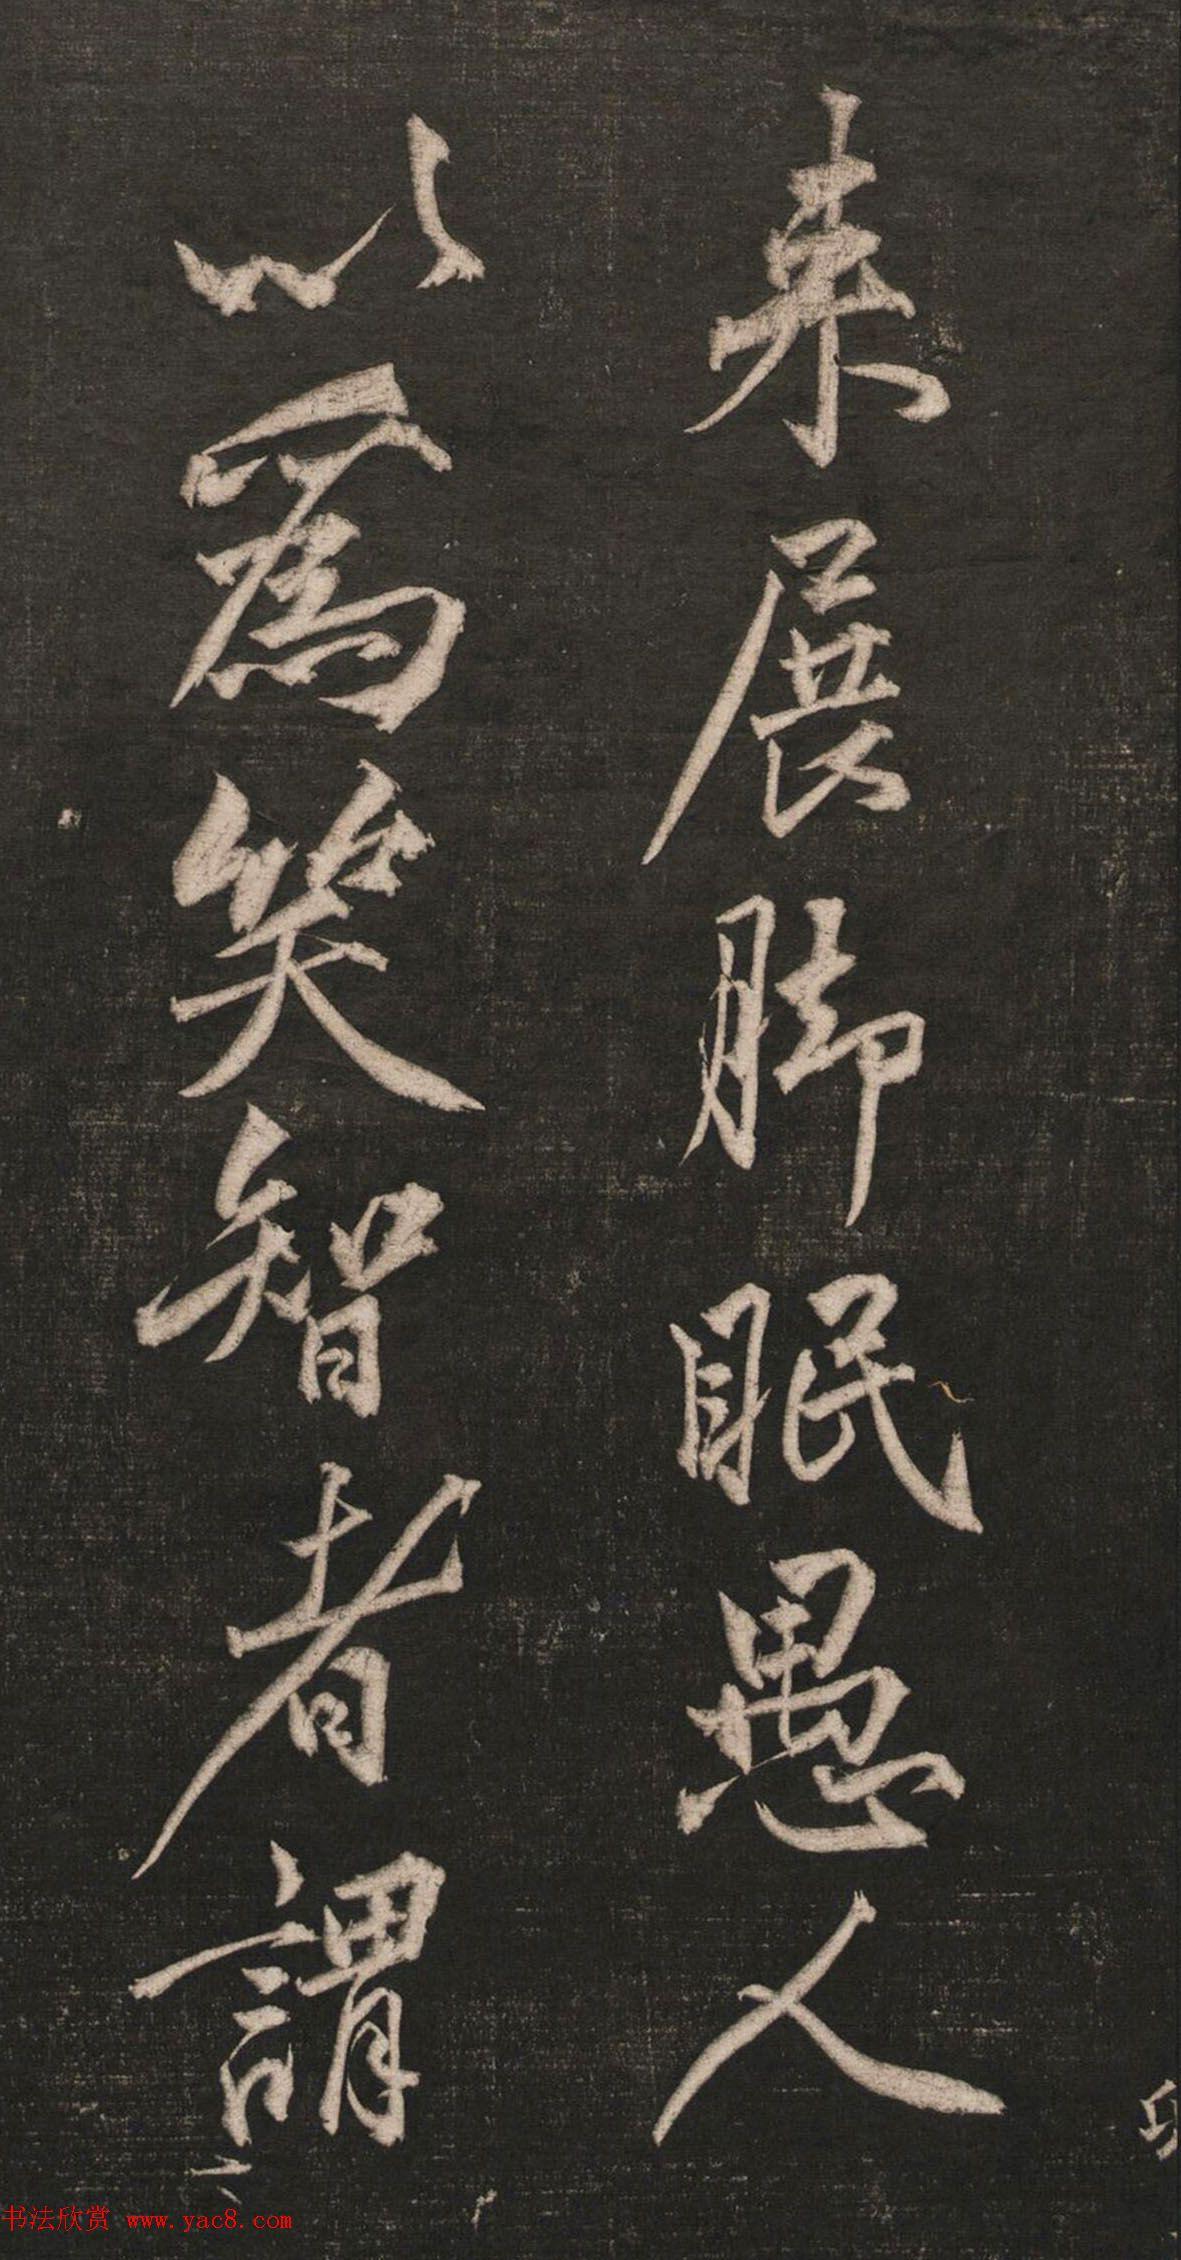 来展脚眠愚人
以為笑智者謂
六
书法欣赏 www.yac8.com